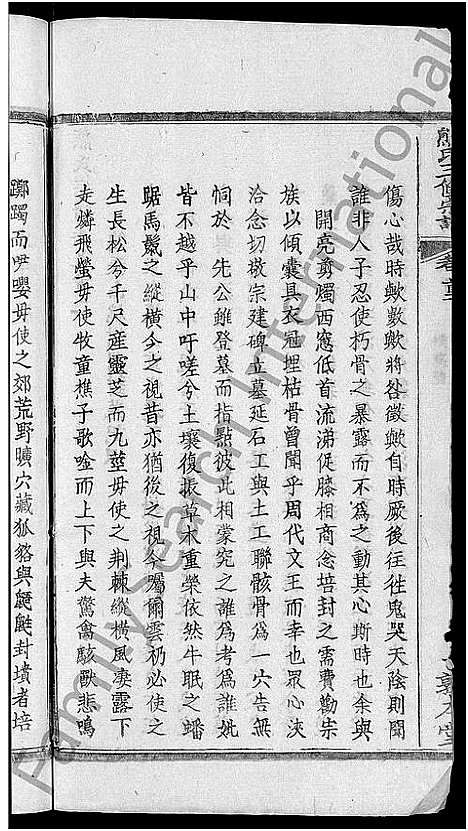 傷心哉時歟數歟將咎徵歟自時厥後往往鬼哭天陰則聞
誰非人子忍使朽骨之暴露而不爲之動其心斯時也余與
開亮剪燭西窓低首流涕促膝相商念培封之需費勸宗
族以傾囊具衣冠埋枯骨曾聞乎周代文王而幸也衆心浹
洽念切敬宗建碑立墓延石工與土工聯骸骨爲一穴告無
恫於 先公雖登墓而指點彼此相蒙究之誰爲考爲誰妣
皆不越乎山中吁嗟兮土壤復振草木重榮依然牛眠之蟠
踞馬鬣之縱橫今之視昔亦猶後之視今囑爾雲礽必使之
生長松兮千尺産靈芝而九莖毋使之荆棘縱橫風凄露下
走燐飛螢毋使牧童樵子歌唫而上下與夫驚禽駭獸悲鳴
躑躅而咿嚶毋使之郊荒野曠穴藏狐貉與鼯鼪封墳者培
熊氏三修宗譜
卷首
敦本堂
FamilySearch International